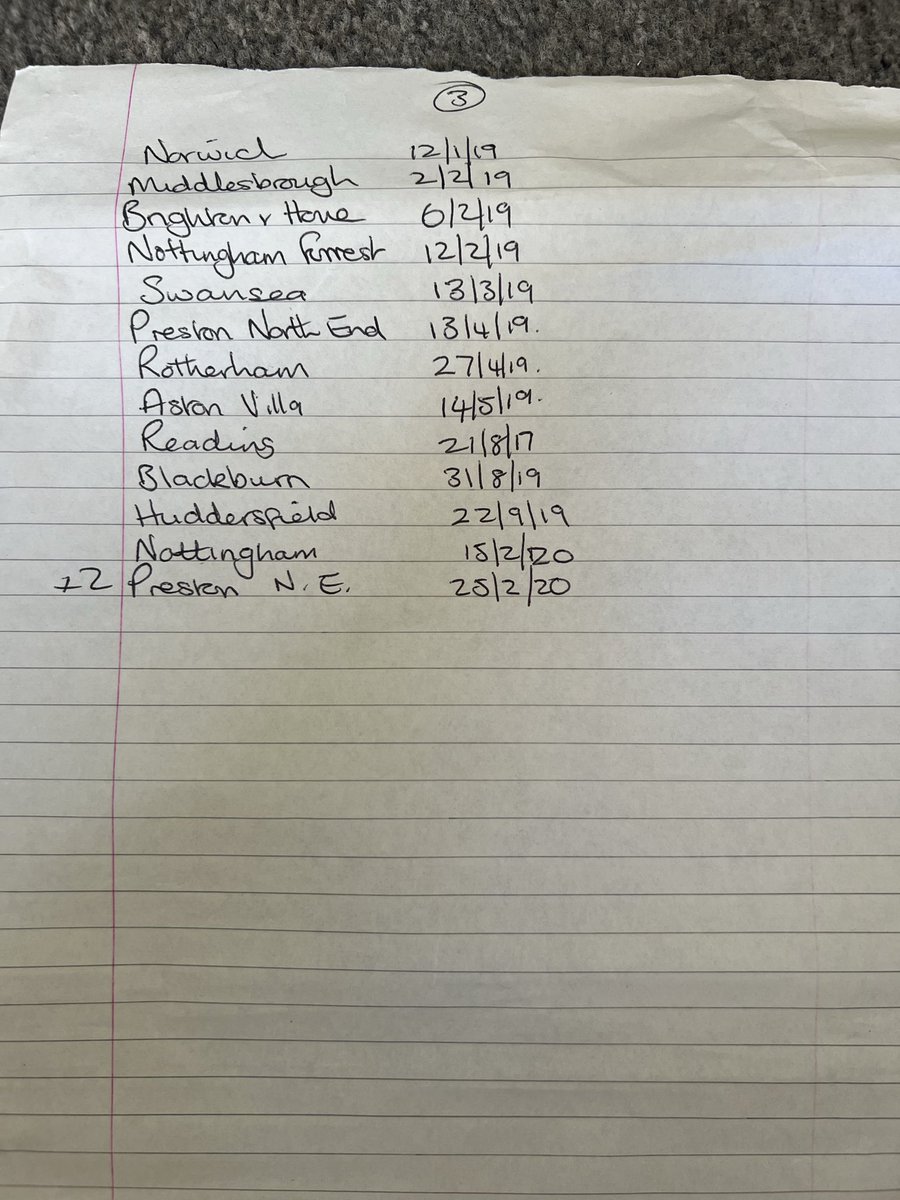 3
Norwich 12/1/19
Middlesbrough 2/2/19
Brighton & Hove 6/2/19
Nottingham Forrest 12/2/19
Swansea 13/3/19
Preston North End 13/4/19.
Rotherham 27/4/19.
Aston Villa 14/5/19.
Reading 21/8/17
Blackburn 31/8/19
Huddersfield 22/9/19
Nottingham 15/2/20
x2 Preston N.E. 25/2/20